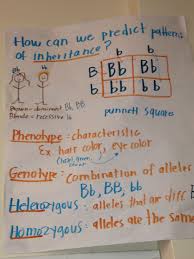 How can we predict patterns
of inheritance?
b b
Bb bb
B Bb Bb
b bb bb
Brown = dominant BB, Bb
Blonde = recessive bb
punnett square
Phenotype: characteristic
Ex. hair color, eye color
(hazel, green,
Genotype: combination of alleles
Bb, BB, bb
Heterozygous: alleles that are diff
Homozygous: alleles are the same